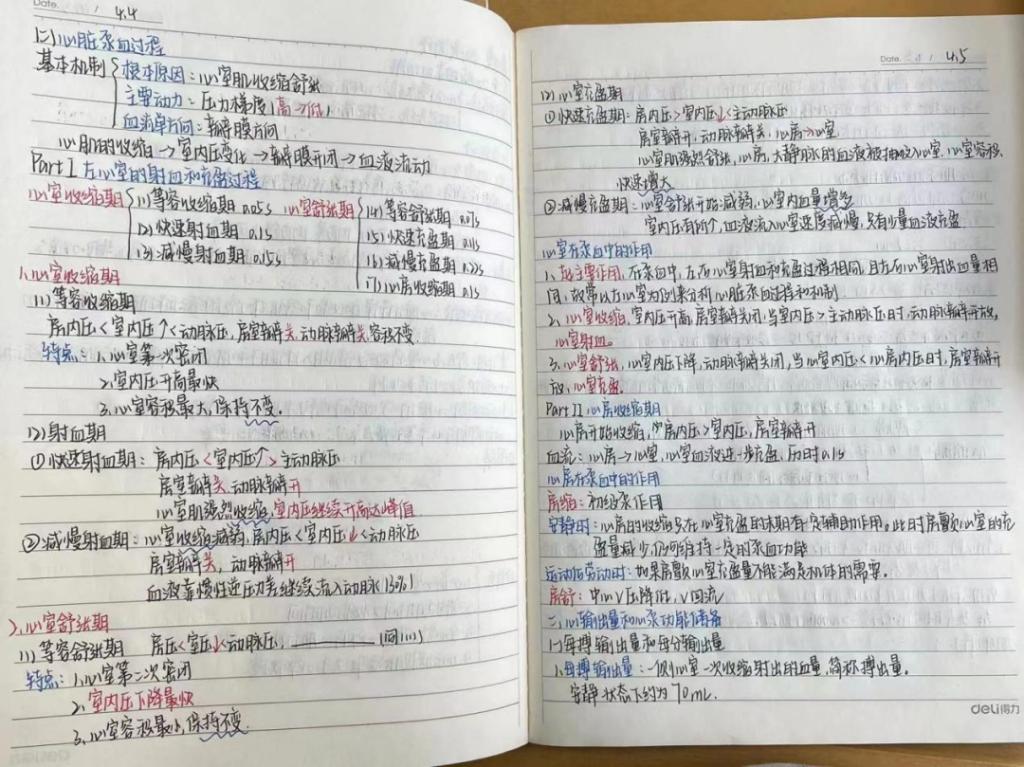 Date. / 4.4
(二)心脏泵血过程
基本机制 根本原因:心室肌收缩舒张
主要动力:压力梯度(高→低)
血流单方向:瓣膜方向
心肌的收缩→室内压变化→瓣膜开闭→血液流动
Part I 左心室的射血和充盈过程
心室收缩期 (1)等容收缩期 0.05s 心室舒张期 (4)等容舒张期 0.01s
(2)快速射血期 0.1s (5)快速充盈期 0.11s
(3)减慢射血期 0.15s (6)减慢充盈期 0.22s
(7)心房收缩期 0.1s
1、心室收缩期
(1)等容收缩期
房内压<室内压↑<动脉压,房室瓣关,动脉瓣关 容积不变.
特点:1、心室第一次密闭
2、室内压升高最快
3、心室容积最大,保持不变。
(2)射血期
①快速射血期:房内压<室内压↑>主动脉压
房室瓣关,动脉瓣开
心室肌强烈收缩,室内压继续升高达峰值
②减慢射血期:心室收缩减弱,房内压<室内压↓<动脉压
房室瓣关,动脉瓣开
血液靠惯性逆压力差继续流入动脉
2、心室舒张期
(1)等容舒张期 房压<室压↓<动脉压, (同(1))
特点:1、心室第二次密闭
2、室内压下降最快
3、心室容积最小,保持不变.
Date. / 4.5
(2)心室充盈期
①快速充盈期:房内压>室内压↓<主动脉压
房室瓣开,动脉瓣关,心房→心室
心室肌强烈舒张,心房、大静脉的血液被抽吸入心室,心室容积
快速增大
②减慢充盈期:心室舒张开始减弱,心室内血量增多
室内压有所↑,血液流入心室速度减慢,只有少量血液充盈
心室在泵血中的作用
1、起主要作用,在泵血中,左右心室射血和充盈过程相同,且左右心室射出血量相
同,故常以左心室为例来分析心脏泵血过程和机制
2、心室收缩,室内压升高,房室瓣关闭,当室内压>主动脉压时,动脉瓣开放,
心室射血。
3、心室舒张,心室内压下降,动脉瓣关闭,当心室内压<心房内压时,房室瓣开
放,心室充盈.
Part II 心房收缩期
心房开始收缩,房内压>室内压,房室瓣开
血流:心房→心室,心室血液进一步充盈,历时0.1s
心房在泵血中的作用
房缩:初级泵作用
安静时:心房的收缩只在心室充盈的末期有一定辅助作用。此时房颤,心室的充
盈量减少,仍可维持一定的泵血功能
运动后劳动时:如果房颤心室充盈量不能满足机体的需要.
房舒:中心V压降低,V回流
二、心输出量和心泵功能储备
(一)每搏输出量和每分输出量
1、每搏输出量:一侧心室一次收缩射出的血量,简称搏出量.
安静状态下约为70mL.
deli得力